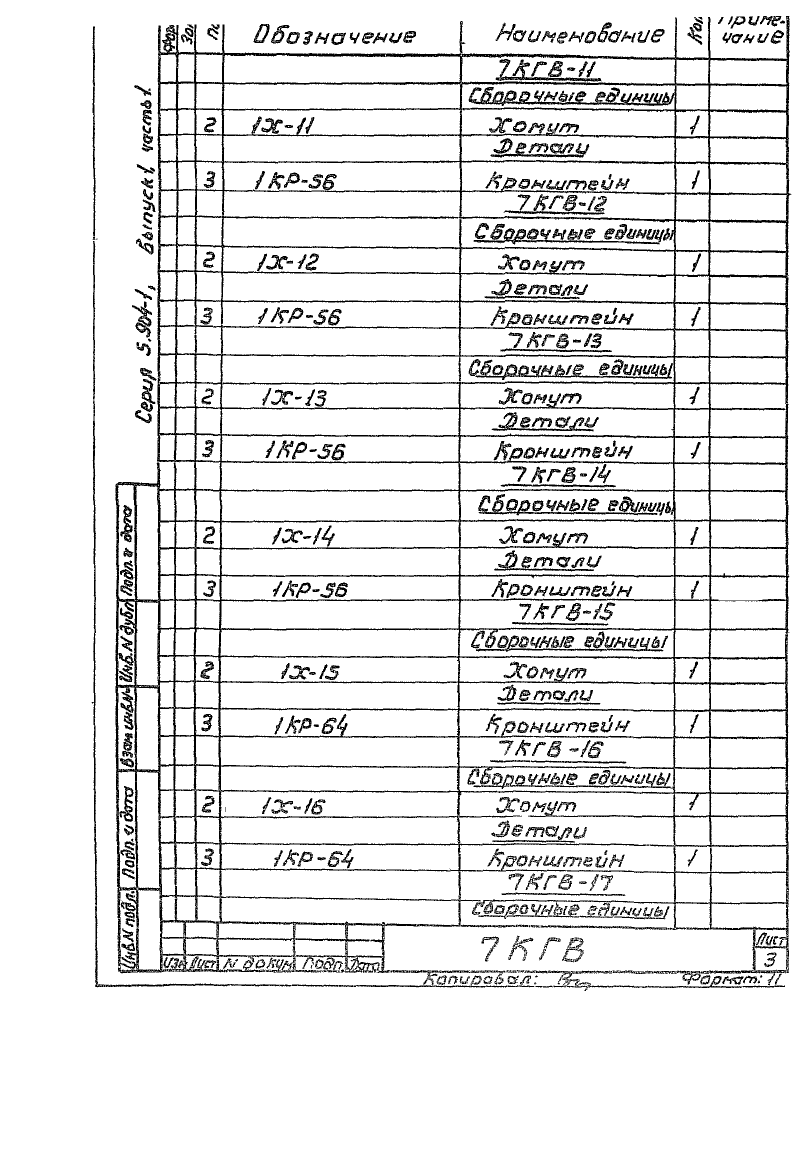 Обозначение Наименование Приме-
чание
7КГВ-11
Сборочные единицы
2 1Х-11 Хомут 1
Детали
3 1КР-56 Кронштейн 1
7КГВ-12
Сборочные единицы
2 1Х-12 Хомут 1
Детали
3 1КР-56 Кронштейн 1
7КГВ-13
Сборочные единицы
2 1Х-13 Хомут 1
Детали
3 1КР-56 Кронштейн 1
7КГВ-14
Сборочные единицы
2 1Х-14 Хомут 1
Детали
3 1КР-56 Кронштейн 1
7КГВ-15
Сборочные единицы
2 1Х-15 Хомут 1
Детали
3 1КР-64 Кронштейн 1
7КГВ-16
Сборочные единицы
2 1Х-16 Хомут 1
Детали
3 1КР-64 Кронштейн 1
7КГВ-17
Сборочные единицы
Серия 5.904-1, Выпуск 1, часть 1.
Подп. и дата
Инв.N дубл
Взам инв.N
Подп. и дата
Инв.N подл.
Изм Лист N докум Подп. Дата
7КГВ
Лист
3
Копировал: Формат: 11